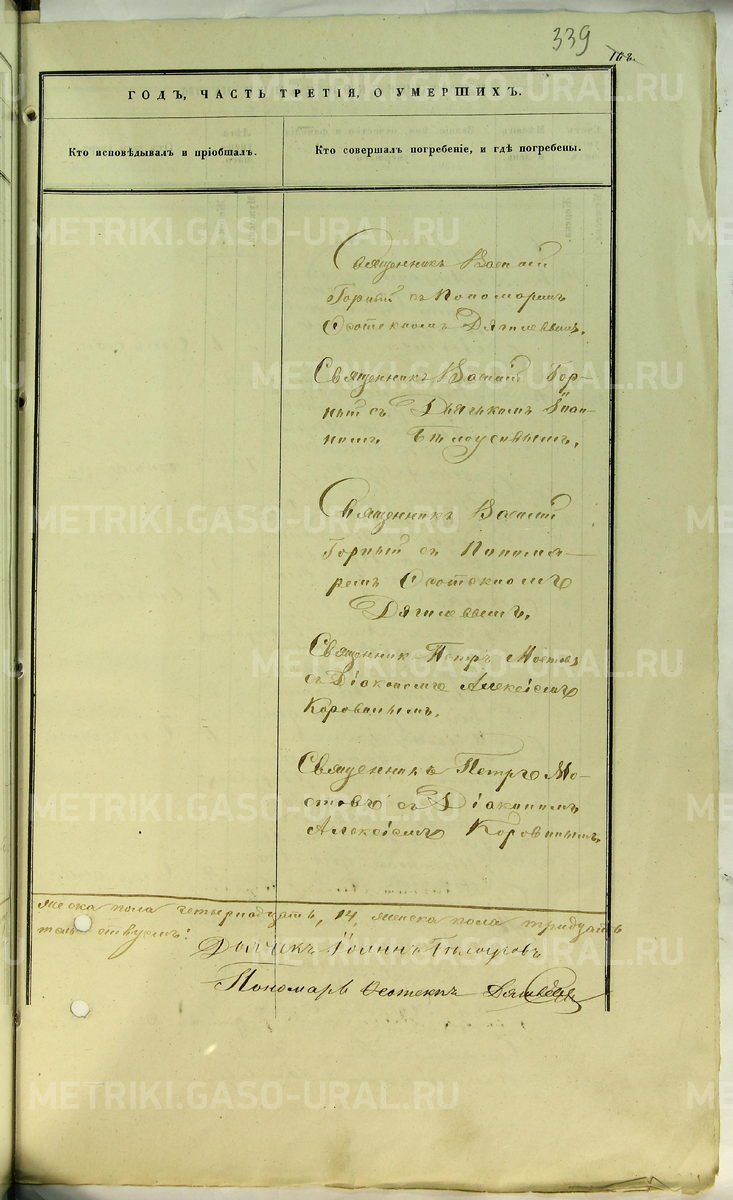 339
168.
ГОДЪ, ЧАСТЬ ТРЕТІЯ, О УМЕРШИХЪ.
Кто исповѣдывалъ и пріобщалъ.
Кто совершалъ погребеніе, и гдѣ погребены.
Священникъ Василій
Горный съ Пономаремъ
Ѳеотекномъ Дягилевымъ.
Священникъ Василій Гор-
ный съ Дьячькомъ Іоан-
номъ Бѣлоусовымъ.
Священникъ Василій
Горный съ Понома-
ремъ Ѳеотекномъ
Дягилевымъ.
Священник Петръ Мостовъ
съ Діакономъ Алексіемъ
Коровинымъ.
Священникъ Петръ Мо-
стовъ съ Діакономъ
Алексіемъ Коровинымъ.
мужеска пола четырнадцать, 14, женска пола тридцать
Дьячекъ Іоаннъ Бѣлоусовъ
Пономарь Ѳеотекнъ Дягилевъ
METRIKI.GASO-URAL.RU